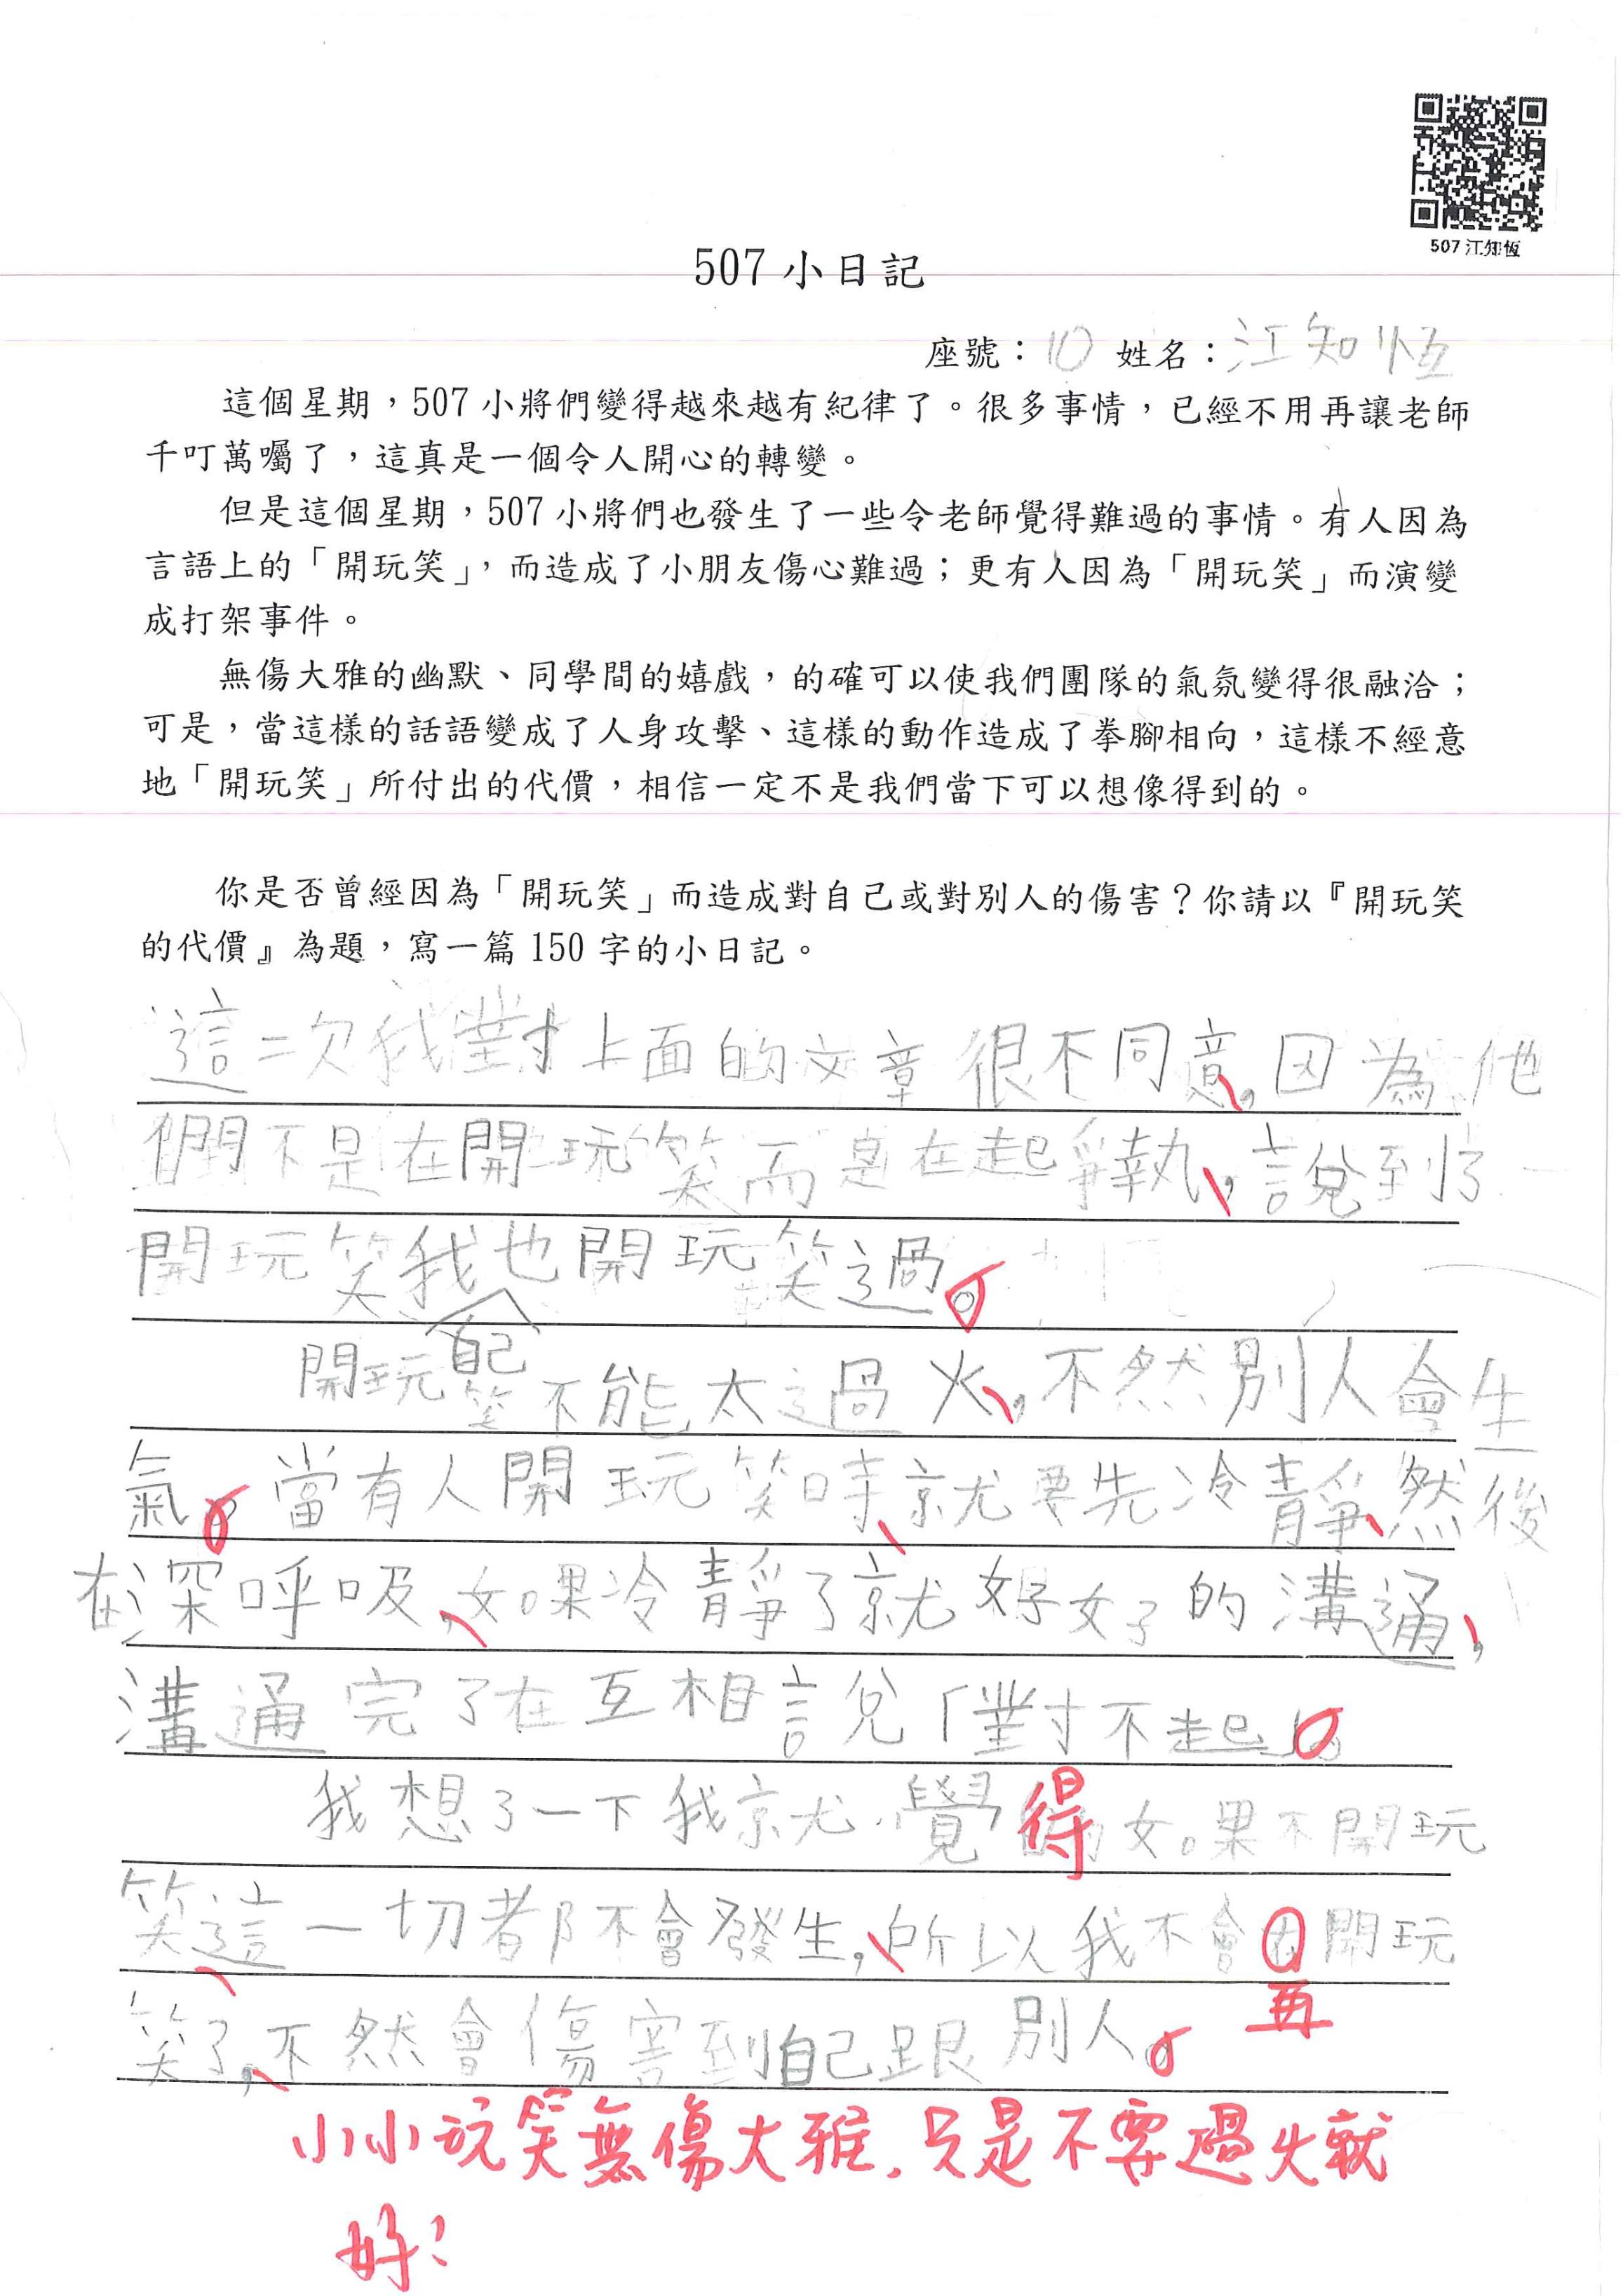 507 江知恆
507 小日記
座號：10 姓名：江知恆
這個星期，507 小將們變得越來越有紀律了。很多事情，已經不用再讓老師
千叮萬囑了，這真是一個令人開心的轉變。
但是這個星期，507 小將們也發生了一些令老師覺得難過的事情。有人因為
言語上的「開玩笑」，而造成了小朋友傷心難過；更有人因為「開玩笑」而演變
成打架事件。
無傷大雅的幽默、同學間的嬉戲，的確可以使我們團隊的氣氛變得很融洽；
可是，當這樣的話語變成了人身攻擊、這樣的動作造成了拳腳相向，這樣不經意
地「開玩笑」所付出的代價，相信一定不是我們當下可以想像得到的。
你是否曾經因為「開玩笑」而造成對自己或對別人的傷害？你請以『開玩笑
的代價』為題，寫一篇 150 字的小日記。
這一次我對上面的文章很不同意，因為他
們不是在開玩笑而是在起爭執，說到了
開玩笑我自己也開玩笑過。
開玩笑不能太過火，不然別人會生
氣。當有人開玩笑時就要先冷靜，然後
在深呼吸，如果冷靜了就好好的溝通，
溝通完了在互相說「對不起」。
我想了一下我就覺得如果不開玩
笑這一切都不會發生，所以我不會在開玩
再
笑了，不然會傷害到自己跟別人。
小小玩笑無傷大雅，只是不要過火就
好！